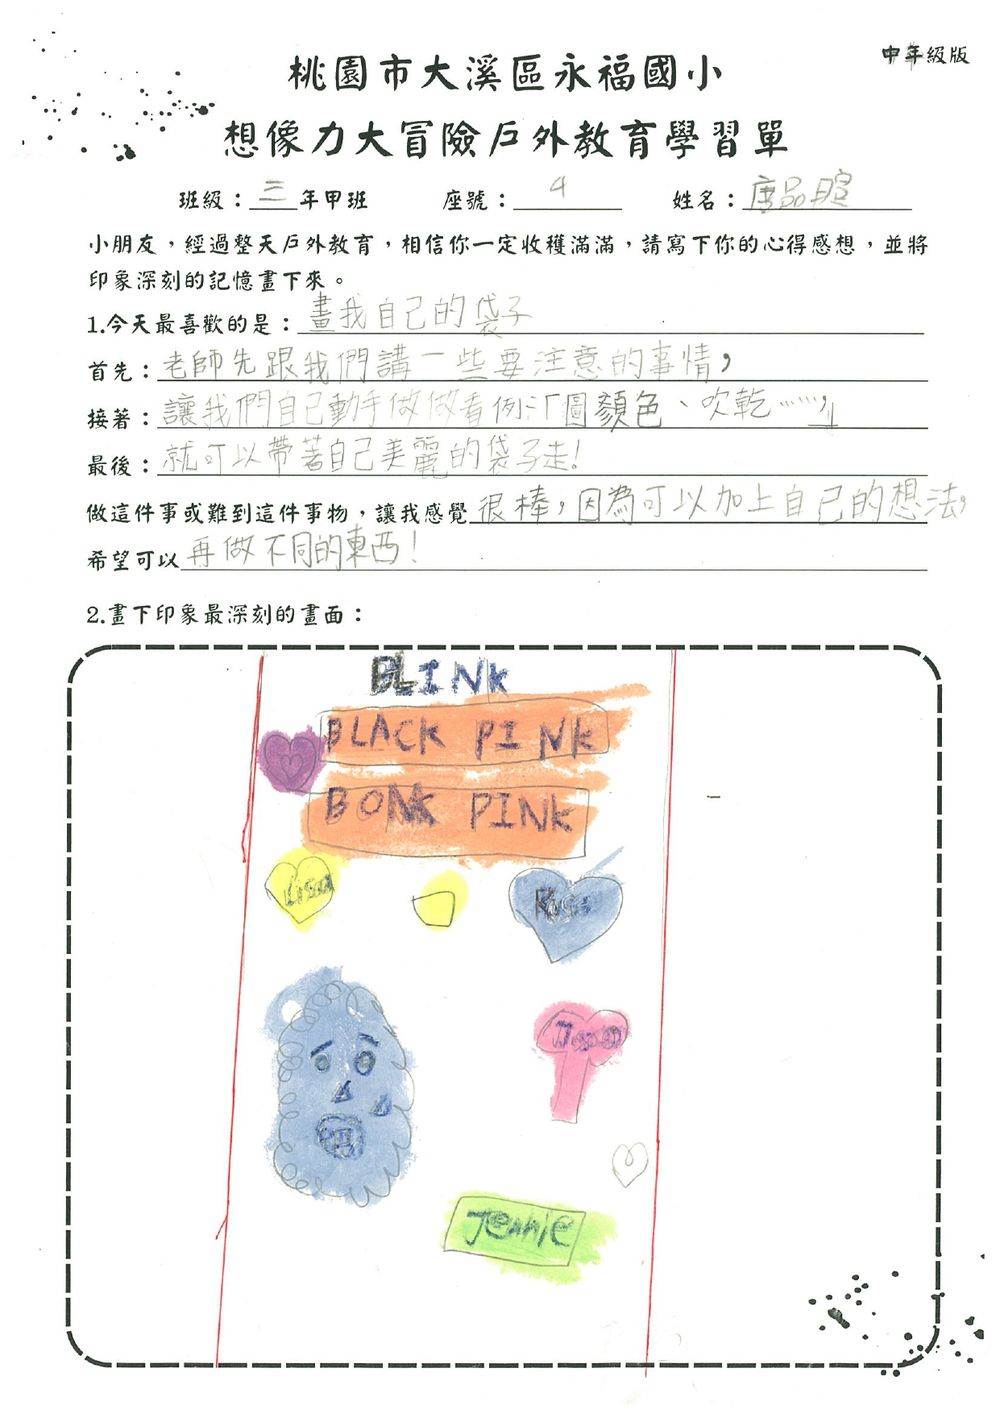 中年級版
桃園市大溪區永福國小
想像力大冒險戶外教育學習單
班級：三年甲班 座號：4 姓名：唐品暄
小朋友，經過整天戶外教育，相信你一定收穫滿滿，請寫下你的心得感想，並將
印象深刻的記憶畫下來。
1.今天最喜歡的是：畫我自己的袋子
首先：老師先跟我們講一些要注意的事情，
接著：讓我們自己動手做做看例：「圖顏色、吹乾……，」
最後：就可以帶著自己美麗的袋子走！
做這件事或難到這件事物，讓我感覺很棒，因為可以加上自己的想法，
希望可以再做不同的東西！
2.畫下印象最深刻的畫面：
BLINK
BLACK PINK
BONK PINK
Lisa
Rose
Jennie